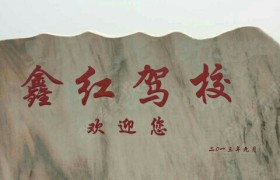 鑫红驾校
欢迎您
二〇一三年元月